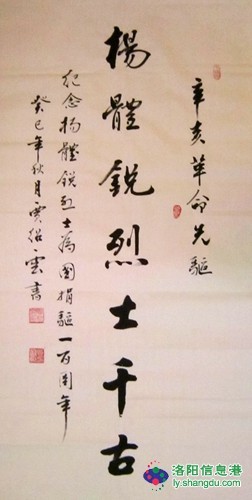 辛亥革命先驅
楊體銳烈士千古
紀念楊體銳烈士為國捐軀一百周年
癸巳年秋月賈紹雲書
洛阳信息港
ly.shangdu.com